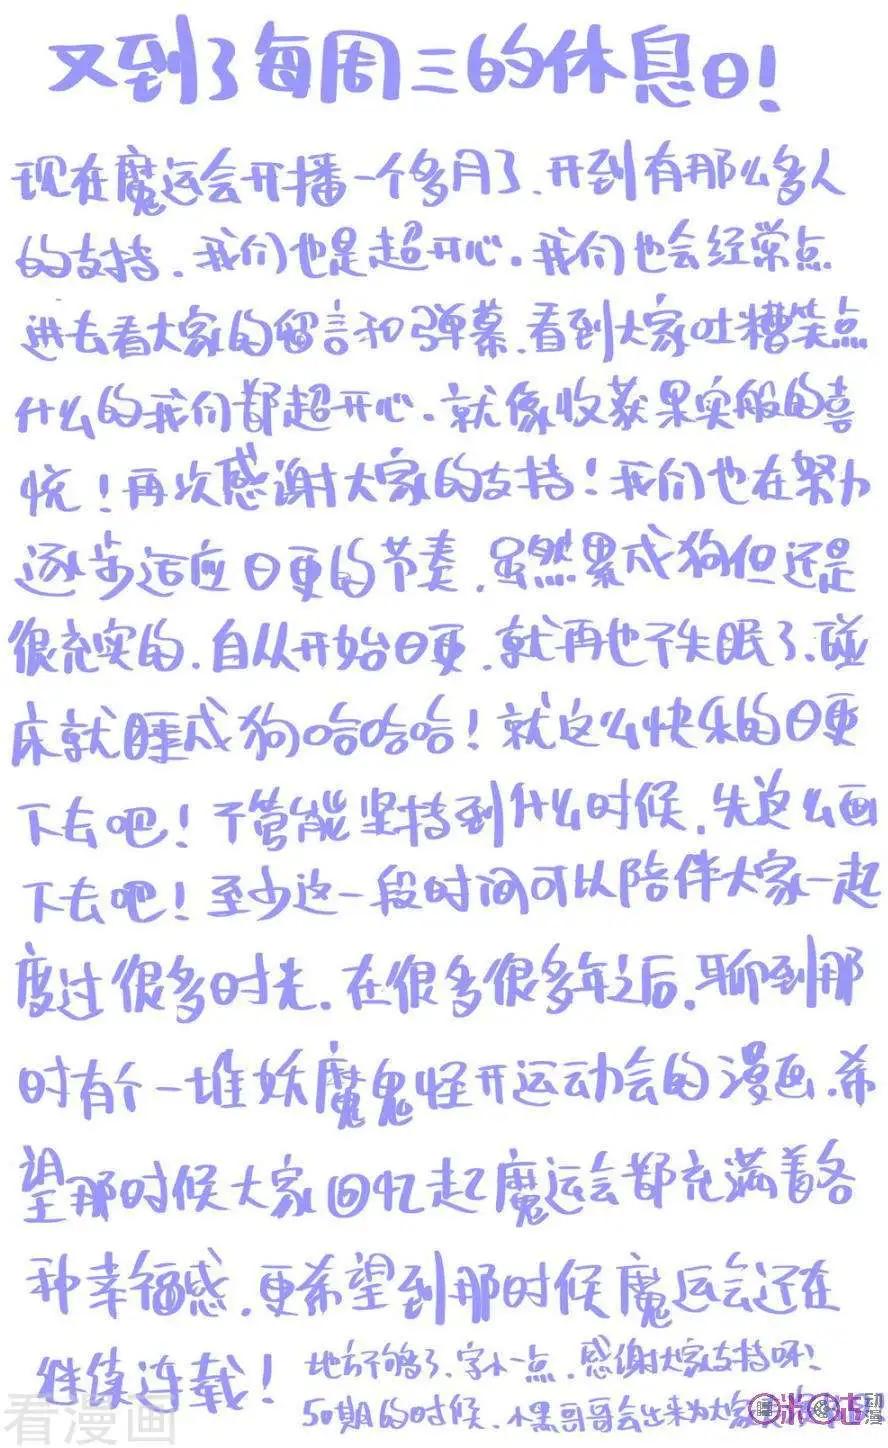 又到了每周三的休息日！
现在魔运会开播一个多月了、看到有那么多人
的支持、我们也是超开心。我们也会经常点
进去看大家的留言和弹幕、看到大家吐槽笑点
什么的我们都超开心、就像收获果实般的喜
悦！再次感谢大家的支持！我们也在努力
逐步适应日更的节奏、虽然累成狗但还是
很充实的、自从开始日更、就再也不失眠了、碰
床就睡成狗哈哈哈！就这么快乐的日更
下去吧！不管能坚持到什么时候、先这么画
下去吧！至少这一段时间可以陪伴大家一起
度过很多时光、在很多很多年之后、聊到那
时有个一堆妖魔鬼怪开运动会的漫画、希
望那时候大家回忆起魔运会都充满着各
种幸福感、更希望到那时候魔运会还在
继续连载！
地方不够了、字小一点、感谢大家支持呀！
50期的时候、小黑哥哥会出来为大家
看漫画
咪咕动漫